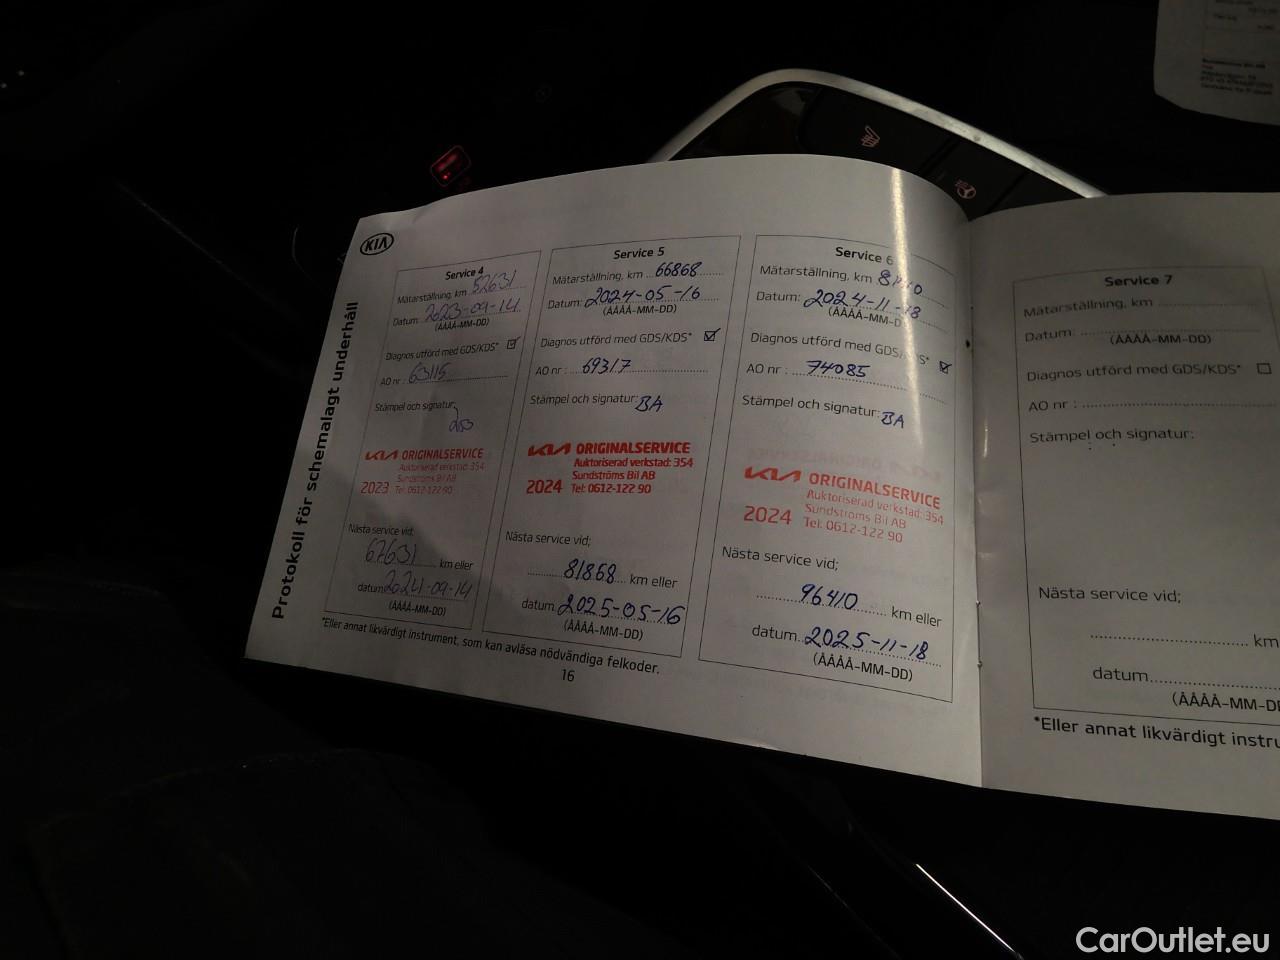 KIA
Protokoll för schemalagt underhåll
Service 4
Mätarställning, km 52631
Datum: 2023-09-14
(ÅÅÅÅ-MM-DD)
Diagnos utförd med GDS/KDS*
AO nr: 63115
Stämpel och signatur:
KIA ORIGINALSERVICE
Auktoriserad verkstad: 354
Sundströms Bil AB
2023 Tel: 0612-122 90
Nästa service vid;
67631 km eller
datum 2024-09-14
(ÅÅÅÅ-MM-DD)
Service 5
Mätarställning, km 66868
Datum: 2024-05-16
(ÅÅÅÅ-MM-DD)
Diagnos utförd med GDS/KDS*
AO nr : 69317
Stämpel och signatur: BA
KIA ORIGINALSERVICE
Auktoriserad verkstad: 354
Sundströms Bil AB
2024 Tel: 0612-122 90
Nästa service vid;
81868 km eller
datum 2025-05-16
(ÅÅÅÅ-MM-DD)
Service 6
Mätarställning, km
Datum: 2024-11-18
(ÅÅÅÅ-MM-D
Diagnos utförd med GDS/KDS*
AO nr : 74085
Stämpel och signatur: BA
KIA ORIGINALSERVICE
Auktoriserad verkstad: 354
Sundströms Bil AB
2024 Tel: 0612-122 90
Nästa service vid;
96410 km eller
datum 2025-11-18
(ÅÅÅÅ-MM-DD)
*Eller annat likvärdigt instrument, som kan avläsa nödvändiga felkoder.
16
Service 7
Mätarställning, km
Datum:
(ÅÅÅÅ-MM-DD)
Diagnos utförd med GDS/KDS*
AO nr :
Stämpel och signatur:
Nästa service vid;
km
datum
(ÅÅÅÅ-MM-DD
*Eller annat likvärdigt instru
CarOutlet.eu